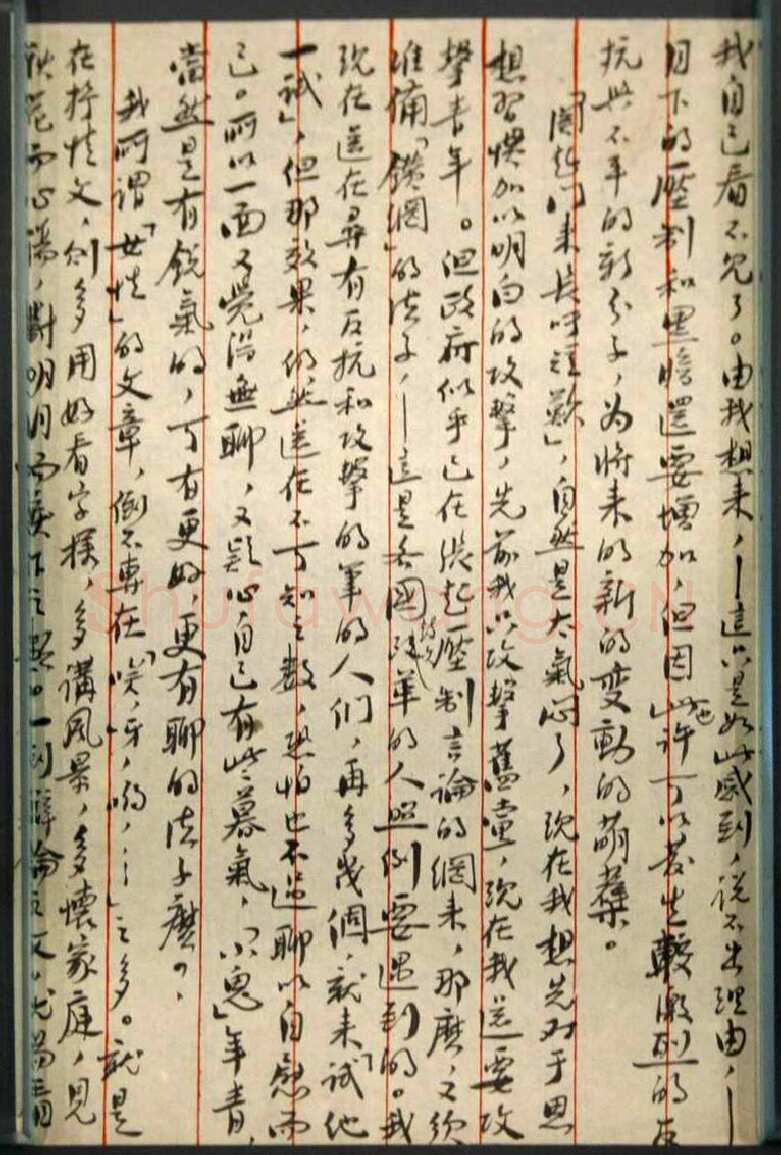 我自己看不見了。由我想来，——這只是如此感到，說不出理由，——
目下的壓制和黑暗還要增加，但因此也許可以发生較激烈的反
抗與不平的新分子，为將来的新的变動的萌蘖。
「關起门来長吁短歎」，自然是太氣闷了，现在我想先对于思
想習慣加以明白的攻擊，先前我只攻擊舊黨，现在我還要攻
擊青年。但政府似乎已在張起壓制言論的網来，那麽，又須
准備「鑽網」的法子，——這是各國鼓吹改革的人照例要遇到的。我
现在還在尋有反抗和攻擊的筆的人们，再多幾個，就来「試他
一試」，但那效果，仍然還在不可知之數，恐怕也不過聊以自慰而
已。所以一面又覺得無聊，又疑心自己有些暮氣，「小鬼」年青，
當然是有鋭氣的，可有更好，更有聊的法子麽？
我所謂「女性」的文章，倒不專在「唉，呀，喲，……」之多。就是
在抒情文，則多用好看字樣，多講風景，多懷家庭，見
秋花而心傷，對明月而淚下之類。一到辯論之文，尤易看
shufawang.CN